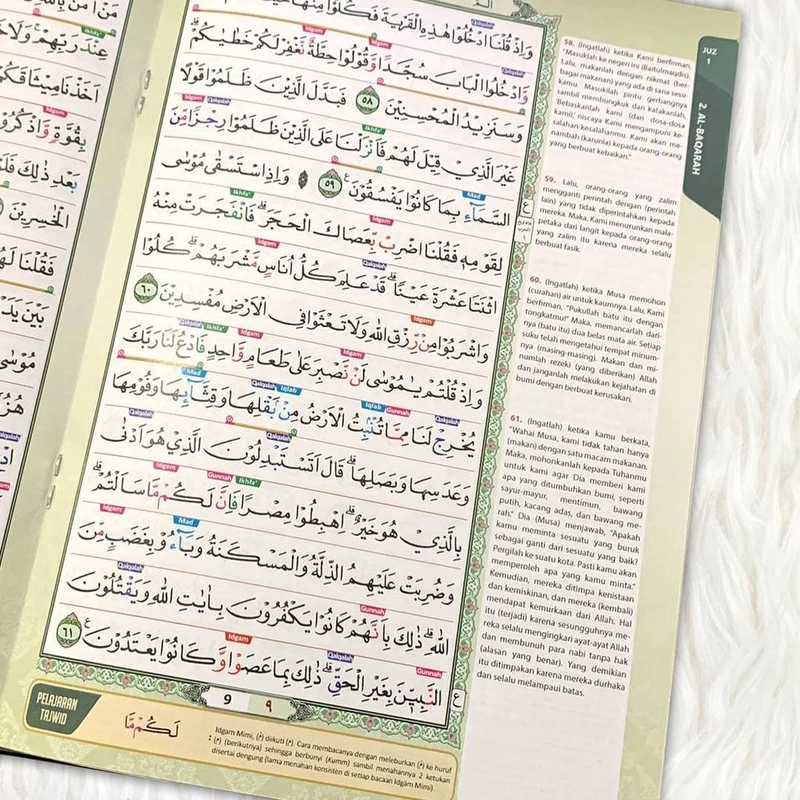 JUZ
1
2. AL-BAQARAH
Qalqalah
وَاِذْ قُلْنَا ادْخُلُوْا هٰذِهِ الْقَرْيَةَ فَكُلُوْا مِنْهَا
Qalqalah Idgam Idgam
وَّادْخُلُوا الْبَابَ سُجَّدًا وَّقُوْلُوْا حِطَّةٌ نَّغْفِرْ لَكُمْ خَطٰيٰكُمْ ۗ
وَسَنَزِيْدُ الْمُحْسِنِيْنَ ٥٨ فَبَدَّلَ الَّذِيْنَ ظَلَمُوْا قَوْلًا
Ikhfa' Qalqalah Idgam
غَيْرَ الَّذِيْ قِيْلَ لَهُمْ فَاَنْزَلْنَا عَلَى الَّذِيْنَ ظَلَمُوْا رِجْزًا مِّنَ
Mad
السَّمَاۤءِ بِمَا كَانُوْا يَفْسُقُوْنَ ࣖ ٥٩ ۞ وَاِذِ اسْتَسْقٰى مُوْسٰى
Idgam Ikhfa'
لِقَوْمِهٖ فَقُلْنَا اضْرِبْ بِّعَصَاكَ الْحَجَرَۗ فَانْفَجَرَتْ مِنْهُ
Qalqalah Idgam
اثْنَتَا عَشْرَةَ عَيْنًا ۗ قَدْ عَلِمَ كُلُّ اُنَاسٍ مَّشْرَبَهُمْ ۗ كُلُوْا
Idgam
وَاشْرَبُوْا مِنْ رِّزْقِ اللّٰهِ وَلَا تَعْثَوْا فِى الْاَرْضِ مُفْسِدِيْنَ ٦٠
Idgam Idgam Ikhfa' Qalqalah
وَاِذْ قُلْتُمْ يٰمُوْسٰى لَنْ نَّصْبِرَ عَلٰى طَعَامٍ وَّاحِدٍ فَادْعُ لَنَا رَبَّكَ
Qalqalah Gunnah Iqlab Iqlab Qalqalah Mad
يُخْرِجْ لَنَا مِمَّا تُنْۢبِتُ الْاَرْضُ مِنْۢ بَقْلِهَا وَقِثَّاۤىِٕهَا وَفُوْمِهَا
Qalqalah
وَعَدَسِهَا وَبَصَلِهَا ۗ قَالَ اَتَسْتَبْدِلُوْنَ الَّذِيْ هُوَ اَدْنٰى
Ikhfa' Gunnah Idgam
بِالَّذِيْ هُوَ خَيْرٌ ۗ اِهْبِطُوْا مِصْرًا فَاِنَّ لَكُمْ مَّا سَاَلْتُمْ ۗ
Mad Idgam
وَضُرِبَتْ عَلَيْهِمُ الذِّلَّةُ وَالْمَسْكَنَةُ وَبَاۤءُوْ بِغَضَبٍ مِّنَ
Gunnah Qalqalah
اللّٰهِ ۗ ذٰلِكَ بِاَنَّهُمْ كَانُوْا يَكْفُرُوْنَ بِاٰيٰتِ اللّٰهِ وَيَقْتُلُوْنَ
Gunnah Qalqalah Idgam
النَّبِيّٖنَ بِغَيْرِ الْحَقِّ ۗ ذٰلِكَ بِمَا عَصَوْا وَّكَانُوْا يَعْتَدُوْنَ ࣖ ٦١
9 ٩
58. (Ingatlah) ketika Kami berfirman,
"Masuklah ke negeri ini (Baitulmaqdis).
Lalu, makanlah dengan nikmat (ber-
bagai makanan) yang ada di sana sesu-
kamu. Masukilah pintu gerbangnya
sambil membungkuk dan katakanlah,
'Bebaskanlah kami (dari dosa-dosa
kami),' niscaya Kami mengampuni ke-
salahan-kesalahanmu. Kami akan me-
nambah (karunia) kepada orang-orang
yang berbuat kebaikan."
59. Lalu, orang-orang yang zalim
mengganti perintah dengan (perintah
lain) yang tidak diperintahkan kepada
mereka. Maka, Kami menurunkan mala-
petaka dari langit kepada orang-orang
yang zalim itu karena mereka selalu
berbuat fasik.
60. (Ingatlah) ketika Musa memohon
(curahan) air untuk kaumnya. Lalu, Kami
berfirman, "Pukullah batu itu dengan
tongkatmu!" Maka, memancarlah dari-
nya (batu itu) dua belas mata air. Setiap
suku telah mengetahui tempat minum-
nya (masing-masing). Makan dan mi-
numlah rezeki (yang diberikan) Allah
dan janganlah melakukan kejahatan di
bumi dengan berbuat kerusakan.
61. (Ingatlah) ketika kamu berkata,
"Wahai Musa, kami tidak tahan hanya
(makan) dengan satu macam makanan.
Maka, mohonkanlah kepada Tuhanmu
untuk kami agar Dia memberi kami
apa yang ditumbuhkan bumi, seperti
sayur-mayur, mentimun, bawang
putih, kacang adas, dan bawang me-
rah." Dia (Musa) menjawab, "Apakah
kamu meminta sesuatu yang buruk
sebagai ganti dari sesuatu yang baik?
Pergilah ke suatu kota. Pasti kamu akan
memperoleh apa yang kamu minta."
Kemudian, mereka ditimpa kenistaan
dan kemiskinan, dan mereka (kembali)
mendapat kemurkaan dari Allah. Hal
itu (terjadi) karena sesungguhnya me-
reka selalu mengingkari ayat-ayat Allah
dan membunuh para nabi tanpa hak
(alasan yang benar). Yang demikian
itu ditimpakan karena mereka durhaka
dan selalu melampaui batas.
PELAJARAN
TAJWID
لَكُمْ مَّا
: Idgam Mimi, (م) diikuti (م). Cara membacanya dengan meleburkan (م) ke huruf
(م) (berikutnya) sehingga berbunyi (Kumm) sambil menahannya 2 ketukan
disertai dengung (lama menahan konsisten di setiap bacaan Idgām Mimi).